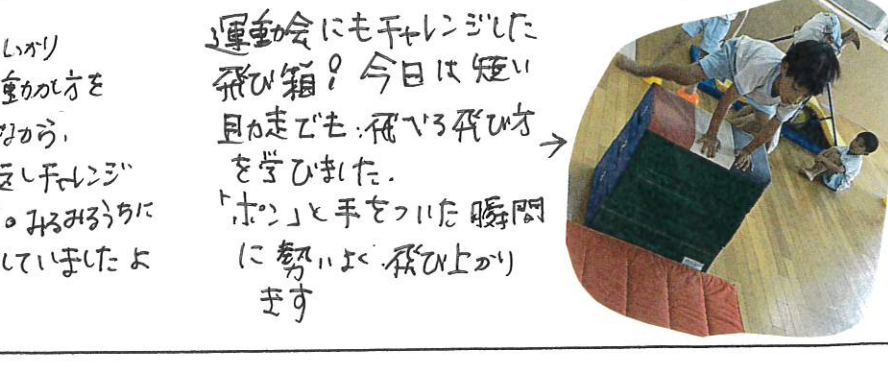 しっかり
動かし方を
ながら、
返しチャレンジ
。みるみるうちに
していましたよ
運動会にもチャレンジした
飛び箱！今日は短い
助走でも飛べる飛び方
を学びました.
「ポン」と手をついた瞬間
に勢いよく飛び上がり
ます
→